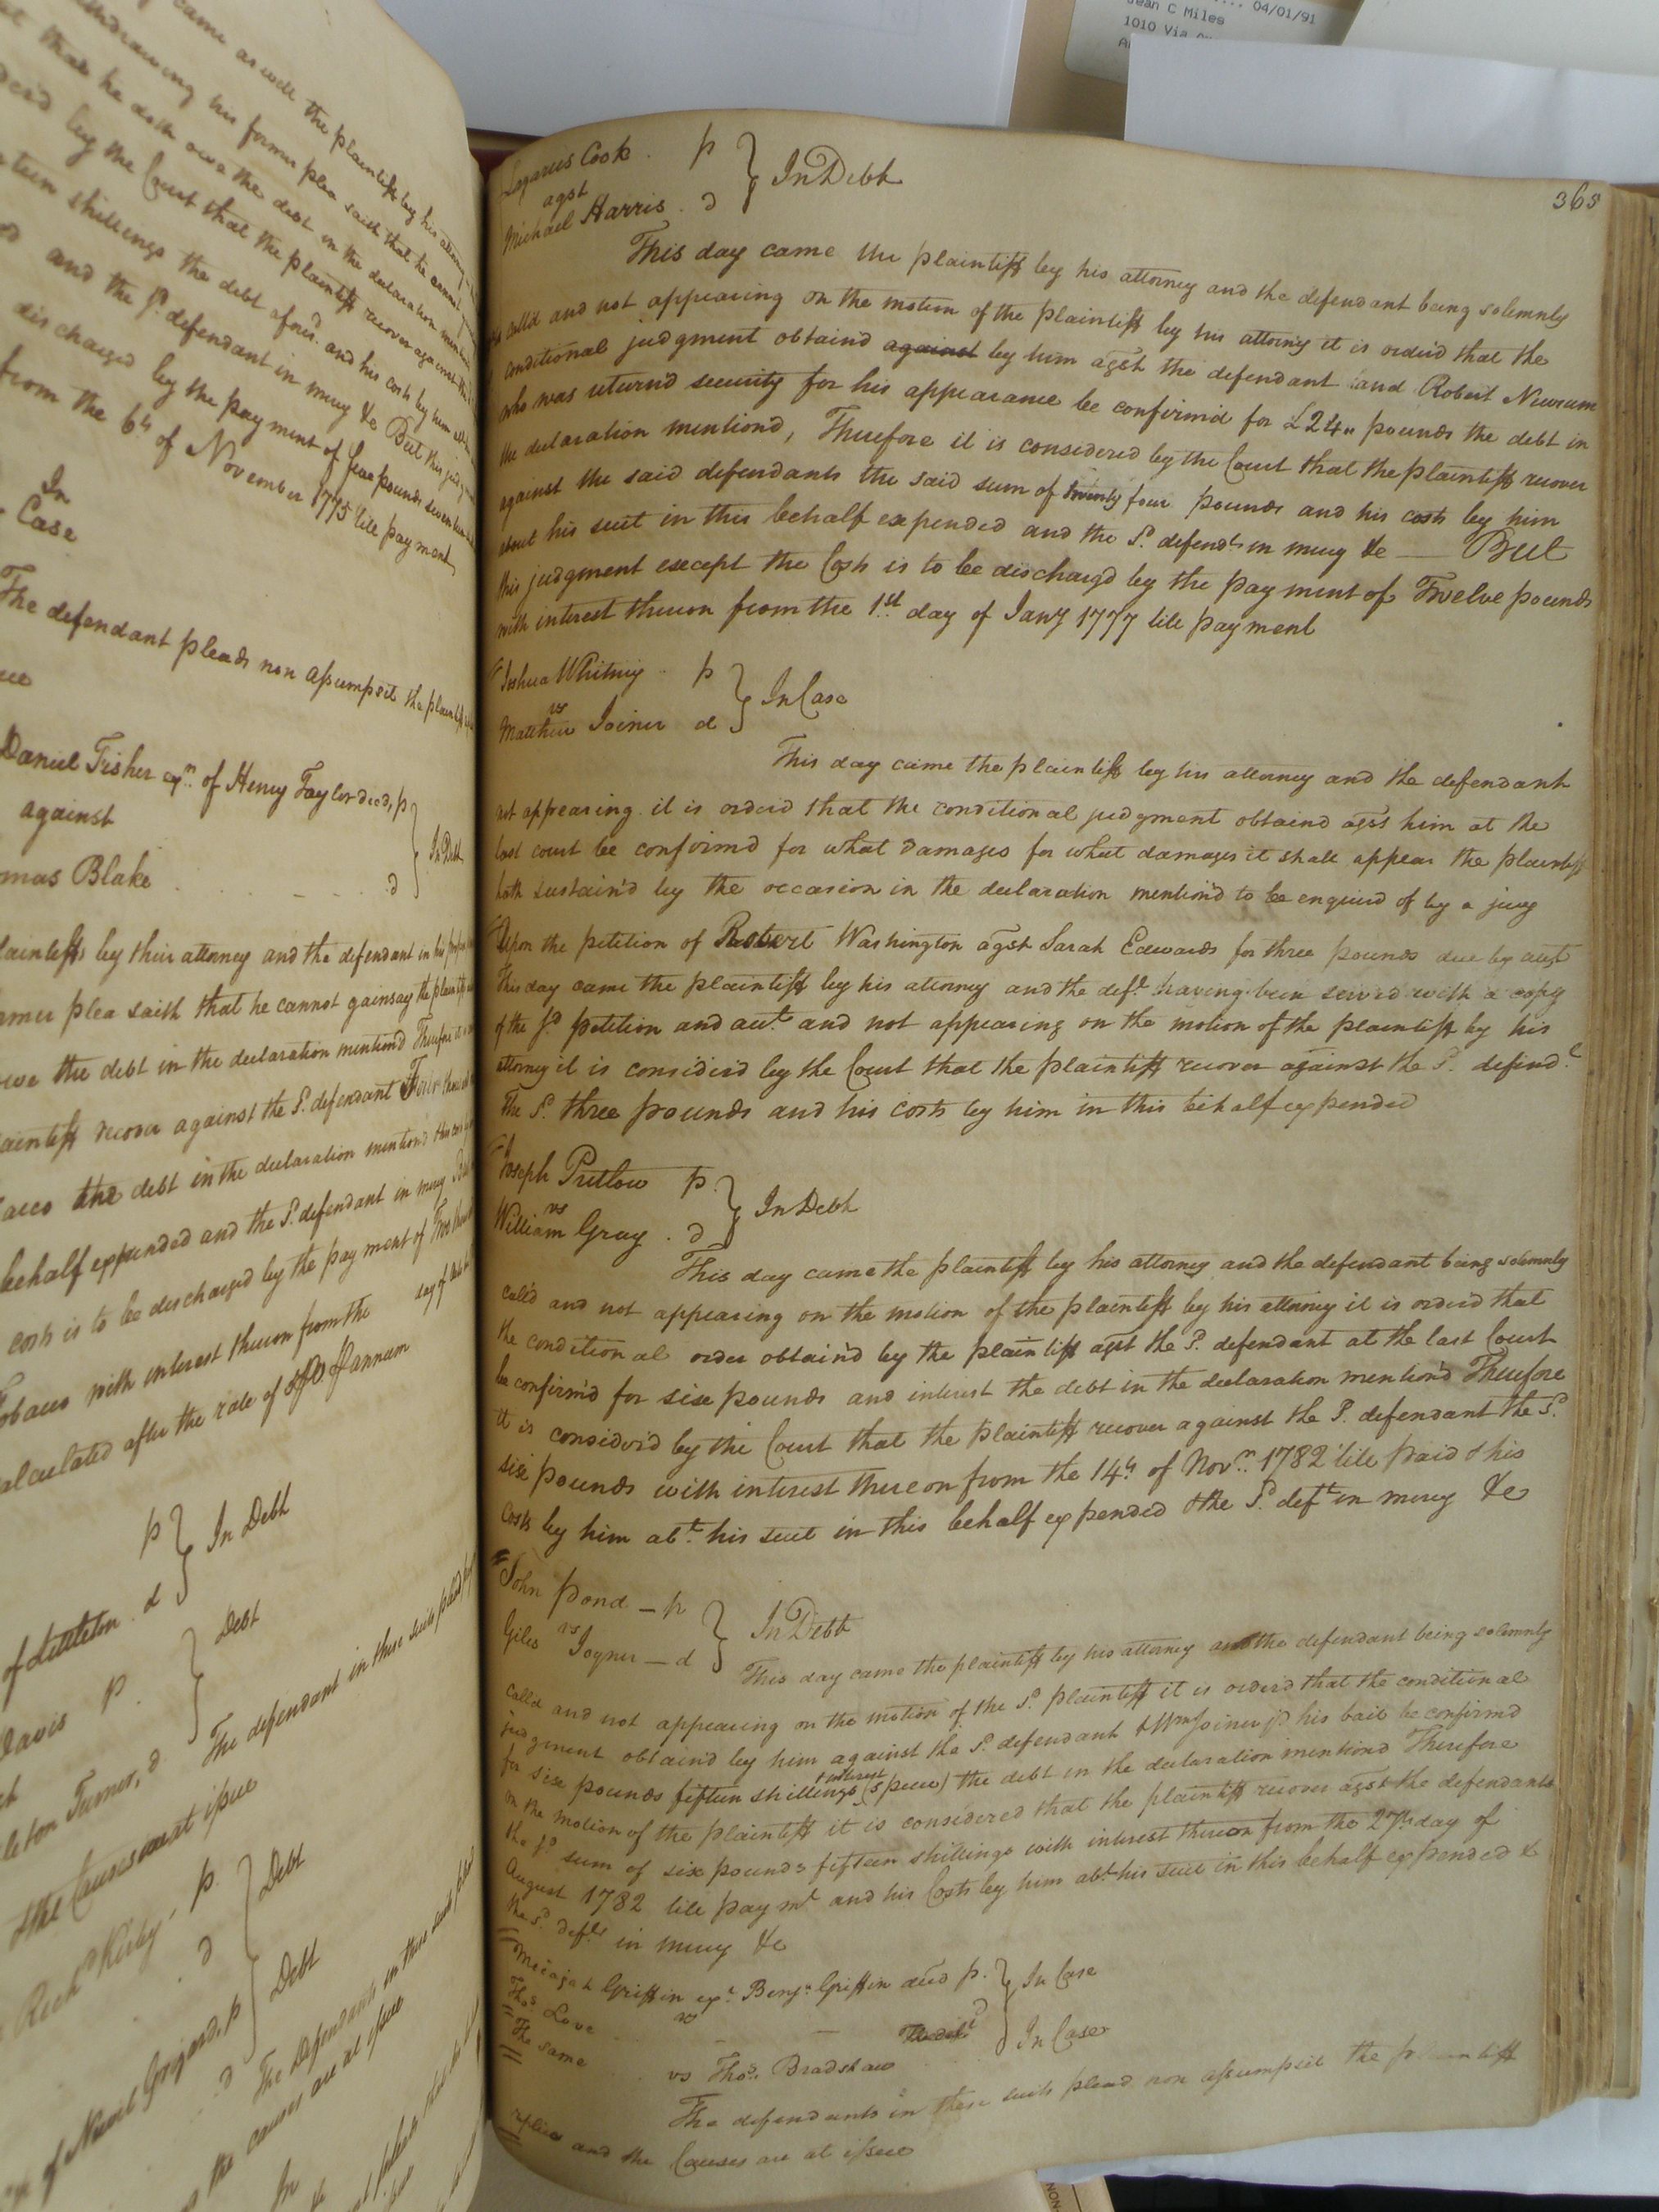 came as well the plaintiff by his attorney
his former plea saith that he cannot
that he doth owe the debt in the declaration
by the Court that the plaintiff recover against
shillings the debt afores'd. and his costs by him
and the s'd. defendant in mercy &c But this
discharged by the payment of five pounds seventeen
from the 6th of November 1775 till payment
In
Case
The defendant pleads non assumpsit the plaintiff
Daniel Fisher exr. of Henry Taylor decd, p
against
In Debt
mas Blake d
plaintiffs by their attorney and the defendant in his proper
former plea saith that he cannot gainsay the plaintiffs
owe the debt in the declaration mentiond Therefore it
plaintiff recover against the S'd. defendant Four
the debt in the declaration mentiond
behalf expended and the S'd. defendant in mercy
costs is to be discharged by the payment of Two
Tobacco with interest thereon from the day of
calculated after the rate of annum
p
In Debt
of Littleton d
Davis p.
Debt
leton Turner, d
The defendant in these suits
the Causes are at issue
Richd Kirby p
Debt
d
p
Debt
d
The defendants in these suits plead
the causes are at issue
In
04/01/91
Jean C Miles
1010 Via
365
Lazarus Cook. p
agst
In Debt
Michael Harris. d
This day came the plaintiff by his attorney and the defendant being solemnly
call'd and not appearing on the motion of the plaintiff by his attorney it is order'd that the
conditional judgment obtain'd against by him agst the defendant and Robert Newsum
who was return'd security for his appearance be confirm'd for £24" pounds the debt in
the declaration mention'd, Therefore it is considered by the Court that the plaintiff recover
against the said defendants the said sum of twenty four pounds and his costs by him
about his suit in this behalf expended and the Sd. defendts in mercy &c — But
this judgment except the Costs is to be discharg'd by the payment of Twelve pounds
with interest thereon from the 1st day of Jany 1777 till payment
Joshua Whitney. p
vs
In Case
Matthew Joiner d
This day came the plaintiff by his attorney and the defendant
not appearing it is orderd that the conditional judgment obtaind agst him at the
last court be confirmd for what damages for what damages it shall appear the plaintiff
hath sustain'd by the occasion in the declaration mention'd to be enquired of by a jury
Upon the petition of Robert Washington agst Sarah Edwards for three pounds due by acct
This day came the plaintiff by his attorney and the deft. having been serv'd with a copy
of the sd petition and acct. and not appearing on the motion of the plaintiff by his
attorney it is consider'd by the Court that the plaintiff recover against the Sd. defendt.
The Sd. three pounds and his costs by him in this behalf expended
Joseph Pretlow p.
vs
In Debt
William Gray. d
This day came the plaintiff by his attorney and the defendant being solemnly
call'd and not appearing on the motion of the plaintiff by his attorney it is orderd that
the conditional order obtain'd by the plaintiff agst the Sd. defendant at the last Court
be confirm'd for six pounds and interest the debt in the declaration mention'd Therefore
it is consider'd by the Court that the plaintiff recover against the Sd. defendant the Sd.
six pounds with interest thereon from the 14th of Novr. 1782 till paid & his
Costs by him abt. his suit in this behalf expended & the Sd. deft in mercy &c
John Pond — p
vs
In Debt
Giles Joyner — d
This day came the plaintiff by his attorney and the defendant being solemnly
calld and not appearing on the motion of the Sd. plaintiff it is orderd that the conditional
judgment obtain'd by him against the Sd. defendant & Wm Joiner jr his bail be confirmd
& interest
for six pounds fifteen shillings (specie) the debt in the declaration mentiond Therefore
on the motion of the plaintiff it is considered that the plaintiff recover agst the defendants
the sd sum of six pounds fifteen shillings with interest thereon from the 27th day of
August 1782 till paymt and his Costs by him abt his suit in this behalf expended &
the Sd. defts in mercy &c
Micajah Griffin exr. Benja. Griffin decd p.
vs
In Case
Thos Love
The same vs Thos. Bradshaw
In Case
The defendants in these suits plead non assumpsit the plaintiff
replies and the Causes are at issue